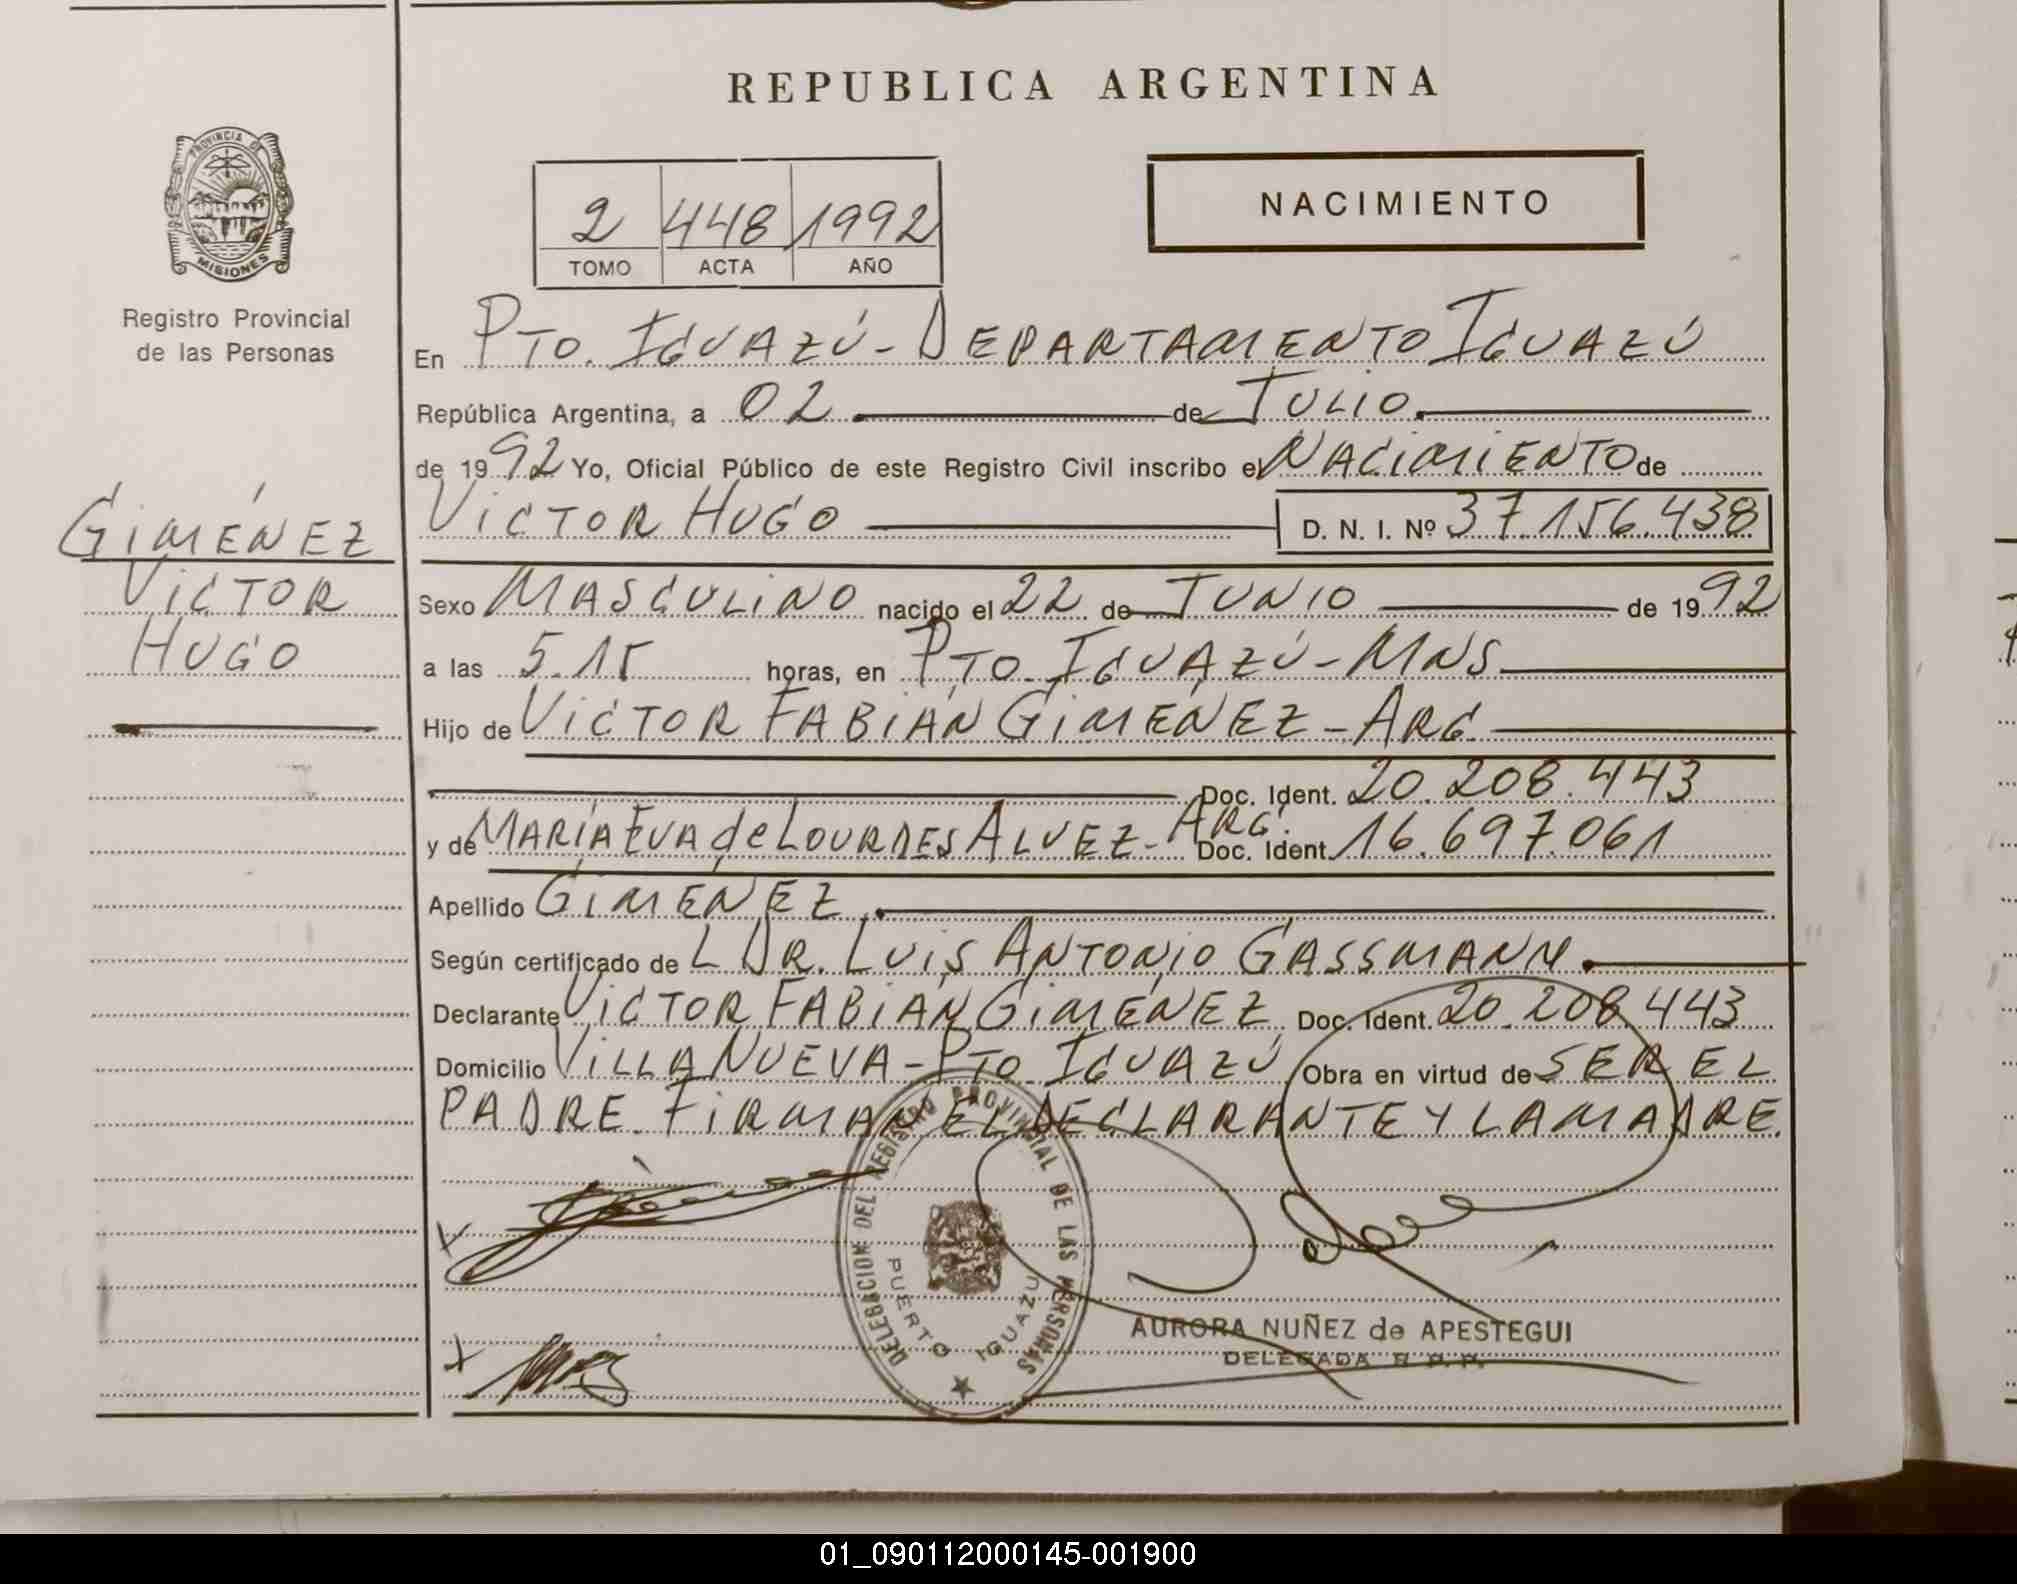 REPUBLICA ARGENTINA
PROVINCIA DE
MISIONES
Registro Provincial
de las Personas
2 448 1992
TOMO ACTA AÑO
NACIMIENTO
En PTO. IGUAZÚ - DEPARTAMENTO IGUAZÚ
República Argentina, a 02 de JULIO
de 1992 Yo, Oficial Público de este Registro Civil inscribo el NACIMIENTO de
VICTOR HUGO D. N. I. Nº 37.156.438
GIMÉNEZ
VICTOR
HUGO
Sexo MASCULINO nacido el 22 de JUNIO de 1992
a las 5.15 horas, en PTO. IGUAZÚ - MNS
Hijo de VICTOR FABIÁN GIMÉNEZ - ARG.
Doc. Ident. 20.208.443
y de MARÍA EVA de LOURDES ALVEZ - ARG. Doc. Ident. 16.697.061
Apellido GIMÉNEZ
Según certificado de L DR. LUIS ANTONIO GASSMANN
Declarante VICTOR FABIÁN GIMÉNEZ Doc. Ident. 20.208.443
Domicilio VILLA NUEVA - PTO. IGUAZÚ Obra en virtud de SER EL
PADRE. FIRMAN EL DECLARANTE Y LA MADRE.
DELEGACION DEL REGISTRO PROVINCIAL DE LAS PERSONAS
PUERTO IGUAZU
AURORA NUÑEZ de APESTEGUI
DELEGADA R. P. P.
01_090112000145-001900